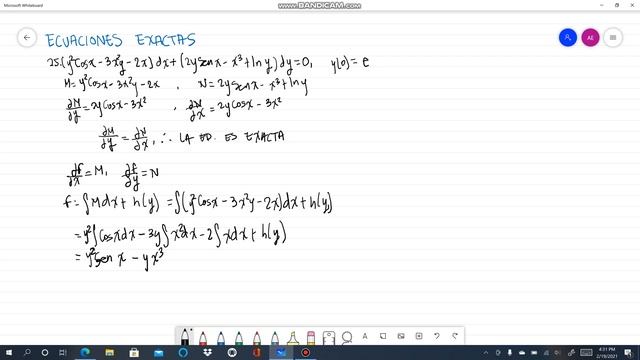 Microsoft Whiteboard
WWW.BANDICAM.COM
ECUACIONES EXACTAS
AE
25.(y²Cosx-3x²y-2x)dx+(2ysenx-x³+lny)dy=0, y(0)=e
M=y²Cosx-3x²y-2x , N=2ysenx-x³+lny
∂M/∂y=2yCosx-3x² , ∂N/∂x=2yCosx-3x²
∂M/∂y=∂N/∂x, ∴ LA ED. ES EXACTA
∂f/∂x=M, ∂f/∂y=N
f=∫Mdx+h(y) =∫(y²Cosx-3x²y-2x)dx+h(y)
=y²∫Cosxdx-3y∫x²dx-2∫xdx+h(y)
=y²sen x-yx³
4:31 PM
2/19/2021